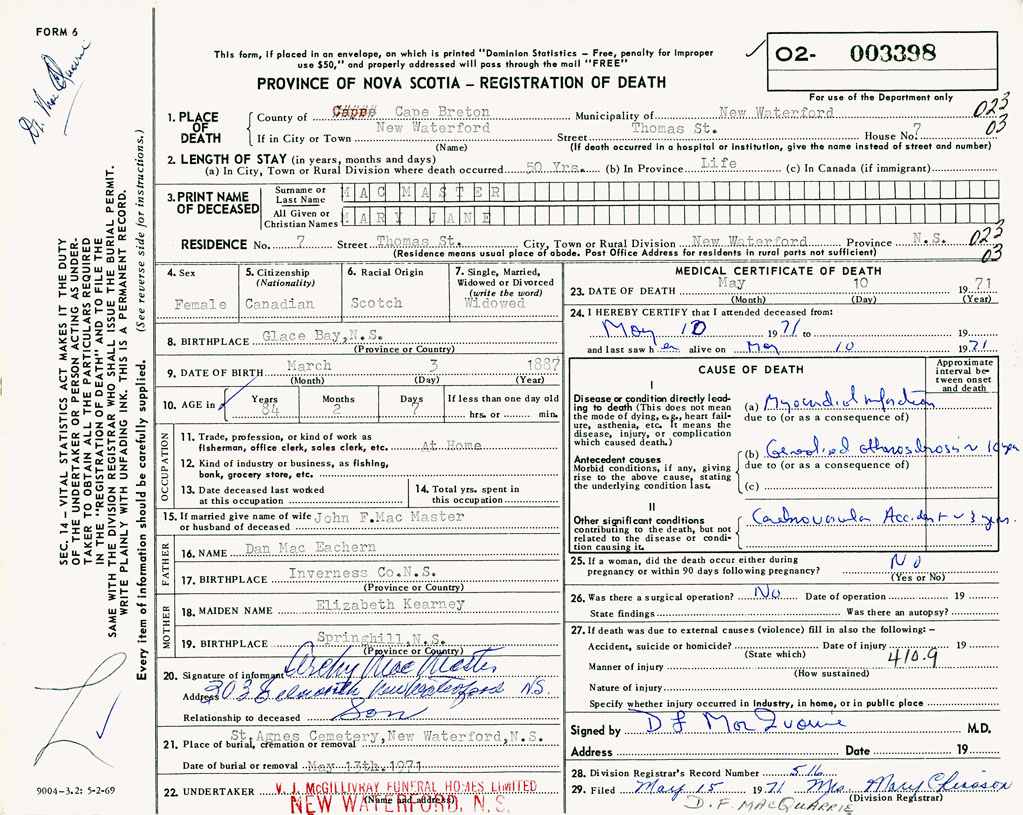 FORM 6
Dr. Mac Quarrie
This form, if placed in an envelope, on which is printed "Dominion Statistics – Free, penalty for improper
use $50," and properly addressed will pass through the mail "FREE"
PROVINCE OF NOVA SCOTIA – REGISTRATION OF DEATH
02- 003398
For use of the Department only
023
03
1. PLACE OF DEATH
County of Cape Breton Municipality of New Waterford
If in City or Town New Waterford Street Thomas St. House No. 7
(Name) (If death occurred in a hospital or institution, give the name instead of street and number)
2. LENGTH OF STAY (in years, months and days)
(a) In City, Town or Rural Division where death occurred 50 Yrs. (b) In Province Life (c) In Canada (if immigrant)
3. PRINT NAME OF DECEASED
Surname or Last Name MAC MASTER
All Given or Christian Names MARY JANE
RESIDENCE No. 7 Street Thomas St. City, Town or Rural Division New Waterford Province N.S.
(Residence means usual place of abode. Post Office Address for residents in rural ports not sufficient)
023
03
4. Sex
Female
5. Citizenship (Nationality)
Canadian
6. Racial Origin
Scotch
7. Single, Married, Widowed or Divorced (write the word)
Widowed
8. BIRTHPLACE Glace Bay,N.S.
(Province or Country)
9. DATE OF BIRTH March 3 1887
(Month) (Day) (Year)
10. AGE in Years 84 Months 2 Days 7 If less than one day old hrs. or min.
OCCUPATION
11. Trade, profession, or kind of work as
fisherman, office clerk, sales clerk, etc. At Home
12. Kind of industry or business, as fishing,
bank, grocery store, etc.
13. Date deceased last worked
at this occupation
14. Total yrs. spent in
this occupation
15. If married give name of wife
or husband of deceased John F.Mac Master
FATHER
16. NAME Dan Mac Eachern
17. BIRTHPLACE Inverness Co.N.S.
(Province or Country)
MOTHER
18. MAIDEN NAME Elizabeth Kearney
19. BIRTHPLACE Springhill,N.S.
(Province or Country)
20. Signature of informant Archy Mac Master
Address 203 New Waterford N.S.
Relationship to deceased Son
21. Place of burial, cremation or removal St.Agnes Cemetery,New Waterford,N.S.
Date of burial or removal May 13th.1971
22. UNDERTAKER V. J. McGILLIVRAY FUNERAL HOMES LIMITED
(Name and address)
NEW WATERFORD, N. S.
MEDICAL CERTIFICATE OF DEATH
23. DATE OF DEATH May 10 1971
(Month) (Day) (Year)
24. I HEREBY CERTIFY that I attended deceased from:
May 10 1971 to 19
and last saw her alive on May 10 1971
CAUSE OF DEATH
Approximate interval between onset and death
I
Disease or condition directly leading to death (This does not mean the mode of dying, e.g., heart failure, asthenia, etc. It means the disease, injury, or complication which caused death.)
(a) Myocardial Infarction
due to (or as a consequence of)
Antecedent causes
Morbid conditions, if any, giving rise to the above cause, stating the underlying condition last.
(b) Generalized atherosclerosis ~ 10 year
due to (or as a consequence of)
(c)
II
Other significant conditions
contributing to the death, but not related to the disease or condition causing it.
Cerebrovascular Accident ~ 3 years.
25. If a woman, did the death occur either during
pregnancy or within 90 days following pregnancy? No
(Yes or No)
26. Was there a surgical operation? No Date of operation 19
State findings Was there an autopsy?
27. If death was due to external causes (violence) fill in also the following: –
Accident, suicide or homicide? Date of injury 19
(State which)
410.9
Manner of injury
(How sustained)
Nature of injury
Specify whether injury occurred in industry, in home, or in public place
Signed by D F MacQuarrie M.D.
Address Date 19
28. Division Registrar's Record Number 516
29. Filed May 15 1971 Mrs. Mary Chiasson
(Division Registrar)
D.F. MACQUARRIE
SEC. 14 – VITAL STATISTICS ACT MAKES IT THE DUTY
OF THE UNDERTAKER OR PERSON ACTING AS UNDER-
TAKER TO OBTAIN ALL THE PARTICULARS REQUIRED
IN THE "REGISTRATION OF DEATH" AND TO FILE THE
SAME WITH THE DIVISION REGISTRAR WHO SHALL ISSUE THE BURIAL PERMIT.
WRITE PLAINLY WITH UNFADING INK. THIS IS A PERMANENT RECORD.
Every item of information should be carefully supplied. (See reverse side for instructions.)
9004-3.2: 5-2-69